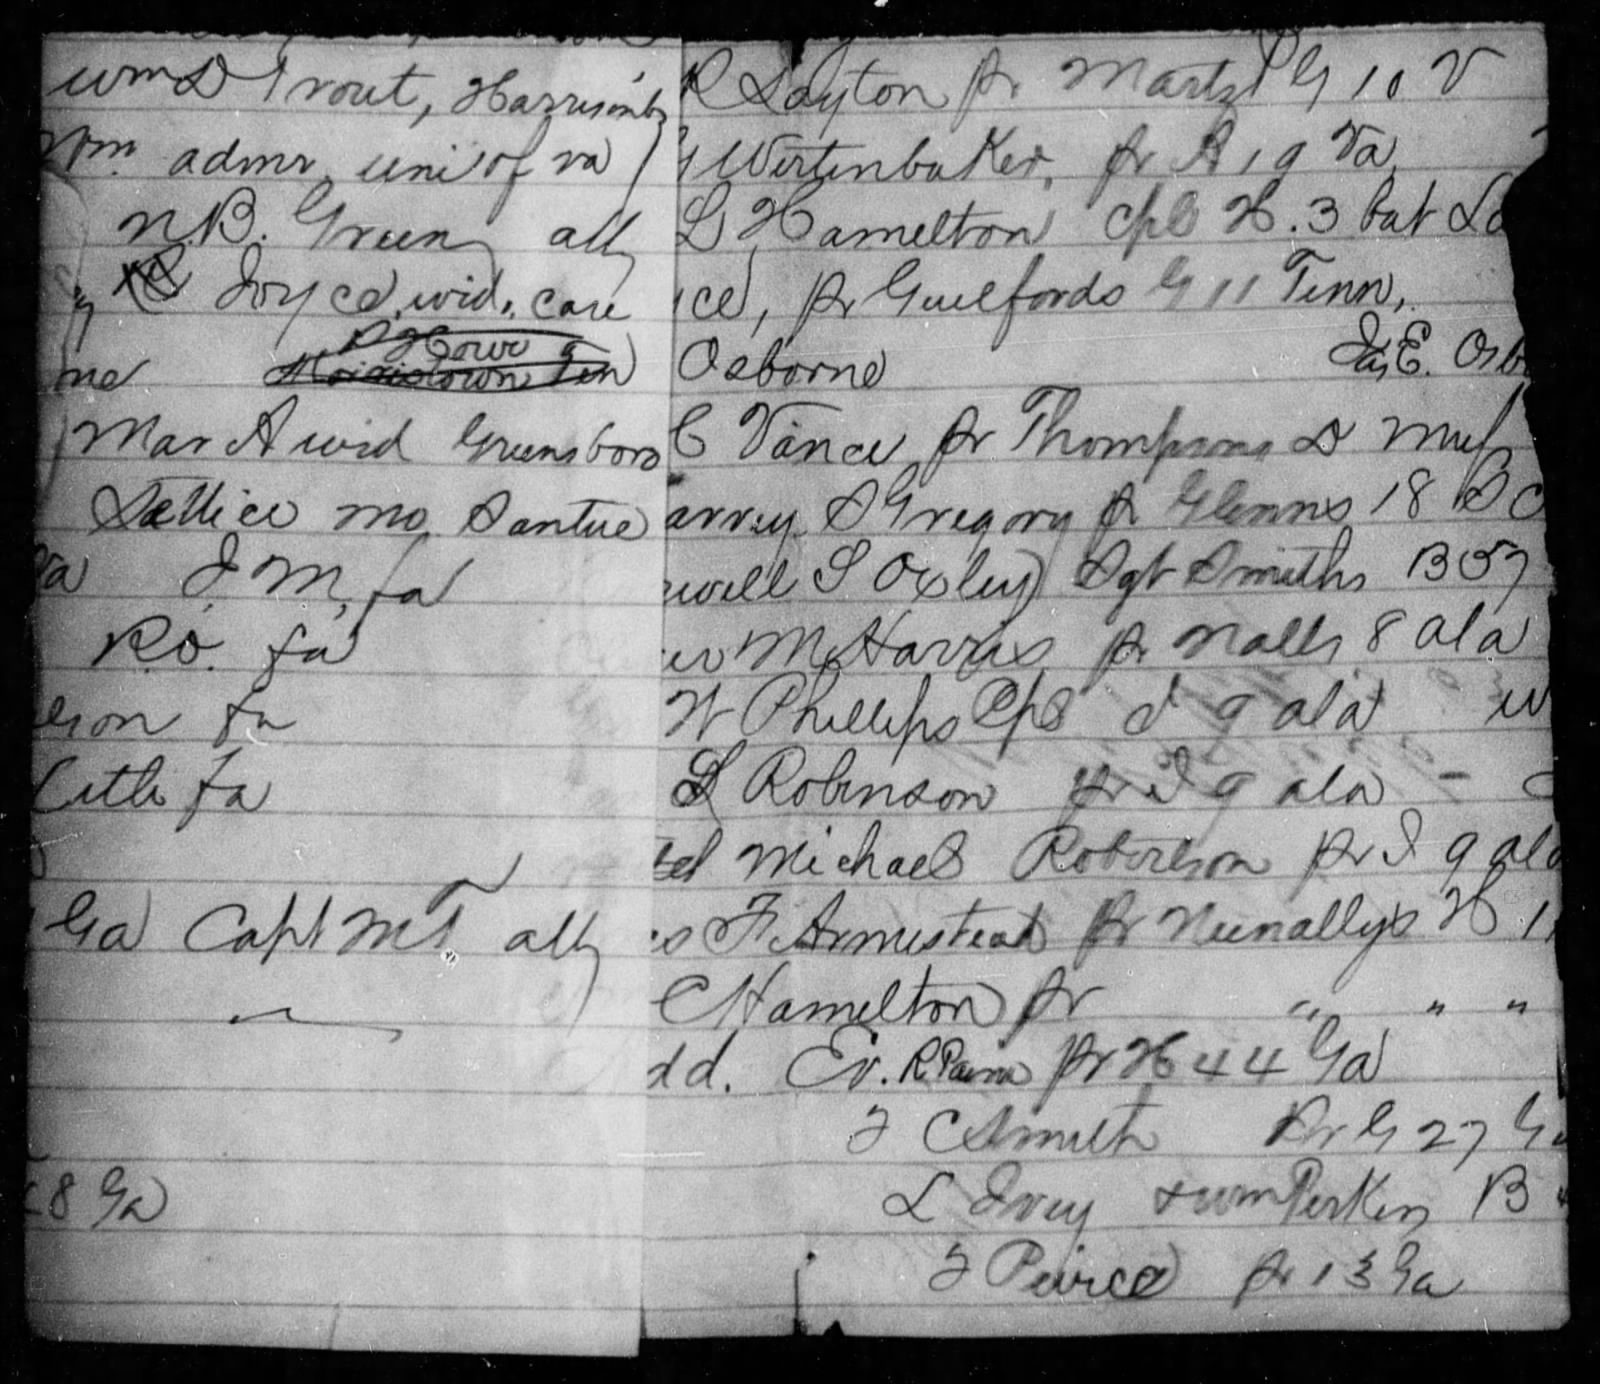 Wm D Trout, Harrisonb R Layton pr Martz G 10 V
Wm admr uni of va Wertenbaker, pr A 19 Va
N.B. Green atty L Hamelton Cpl H. 3 bat La
Joyce, wid, care ce, pr Guelfords G 11 Tenn,
ne Howe Osborne Jas E. Osb
Morristown Ten
Mar A wid Greensboro C Vance pr Thompsons D
Lettice mo Santuc arvey S Gregory pr Glenns 18 S C
Va J M, fa well S Oxley Sgt Smiths B 57
R.O. fa M Harris pr Nalls 8 ala
son fa W Phillips Cpl I 9 ala w
Little fa L Robinson pr I 9 ala -
el Michael Robertson pr I 9 ala
Ga Capt M T atty s F Armistead pr Nunallys H 1
C Hamelton pr " " "
dd. Ev. R. Pam pr H 44 Ga
J C Smith Pr G 27 Ga
8 Ga L Ivey & wm Perkins B
J Peirce pr 13 Ga